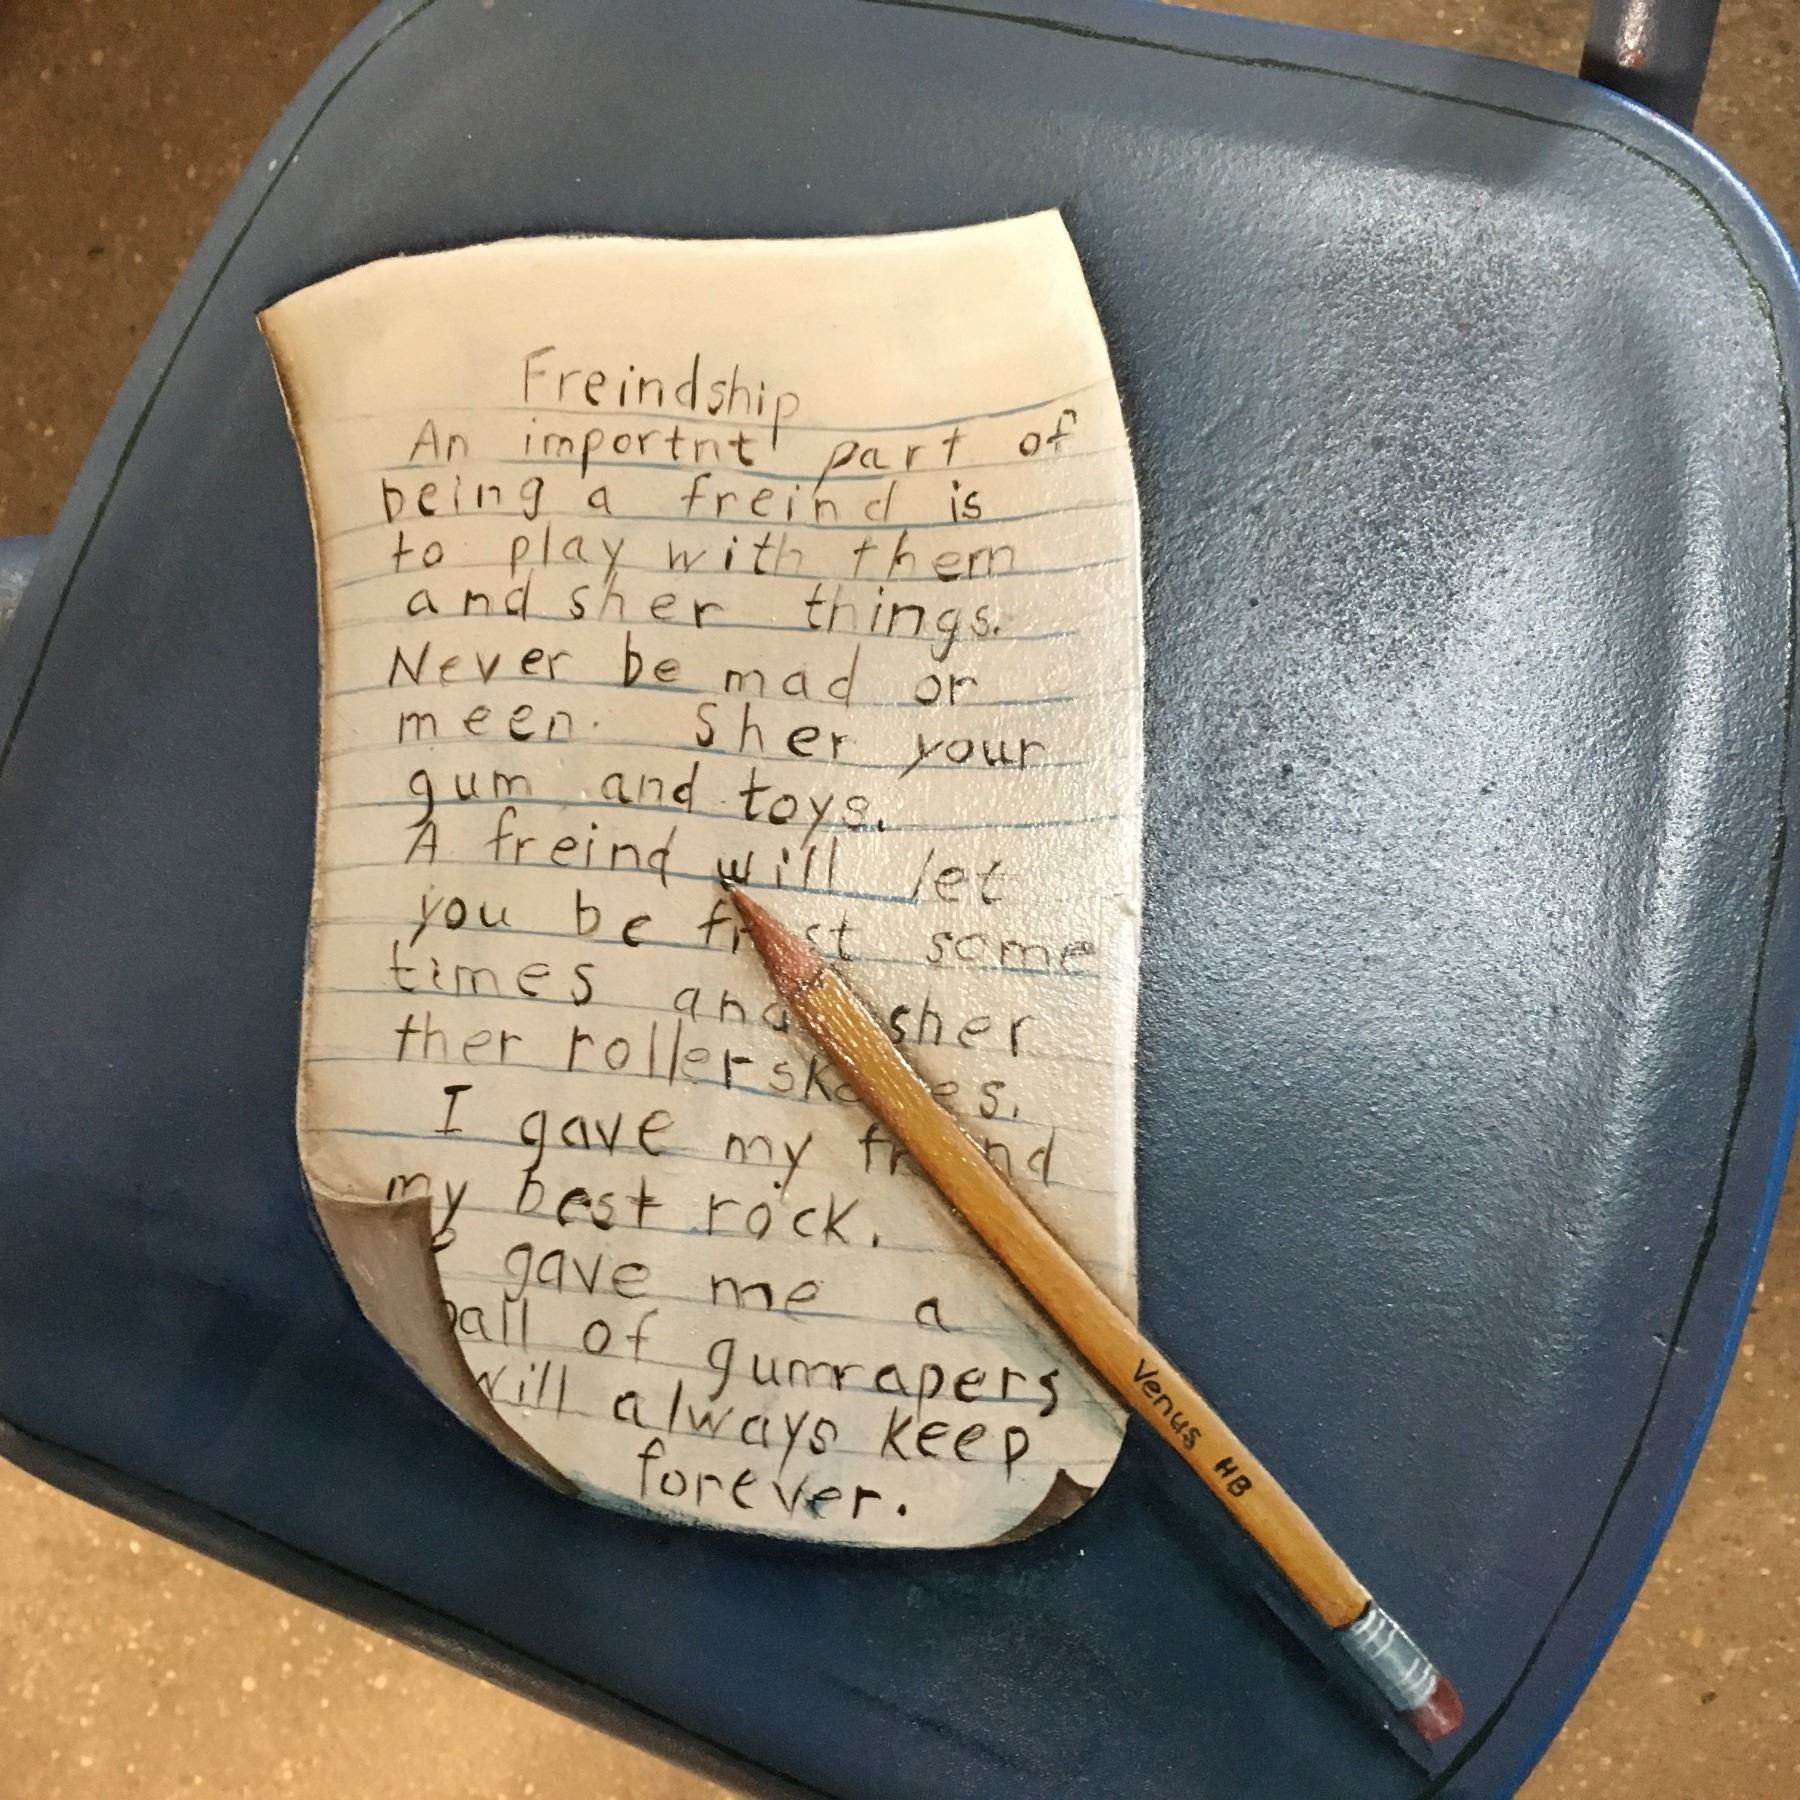 Freindship
An importnt part of
being a freind is
to play with them
and sher things.
Never be mad or
meen. Sher your
gum and toys.
A freind will let
you be st some
times and sher
ther rollerskates.
I gave my
my best rock.
gave me a
ball of gumrapers
will always keep
forever.
Venus HB